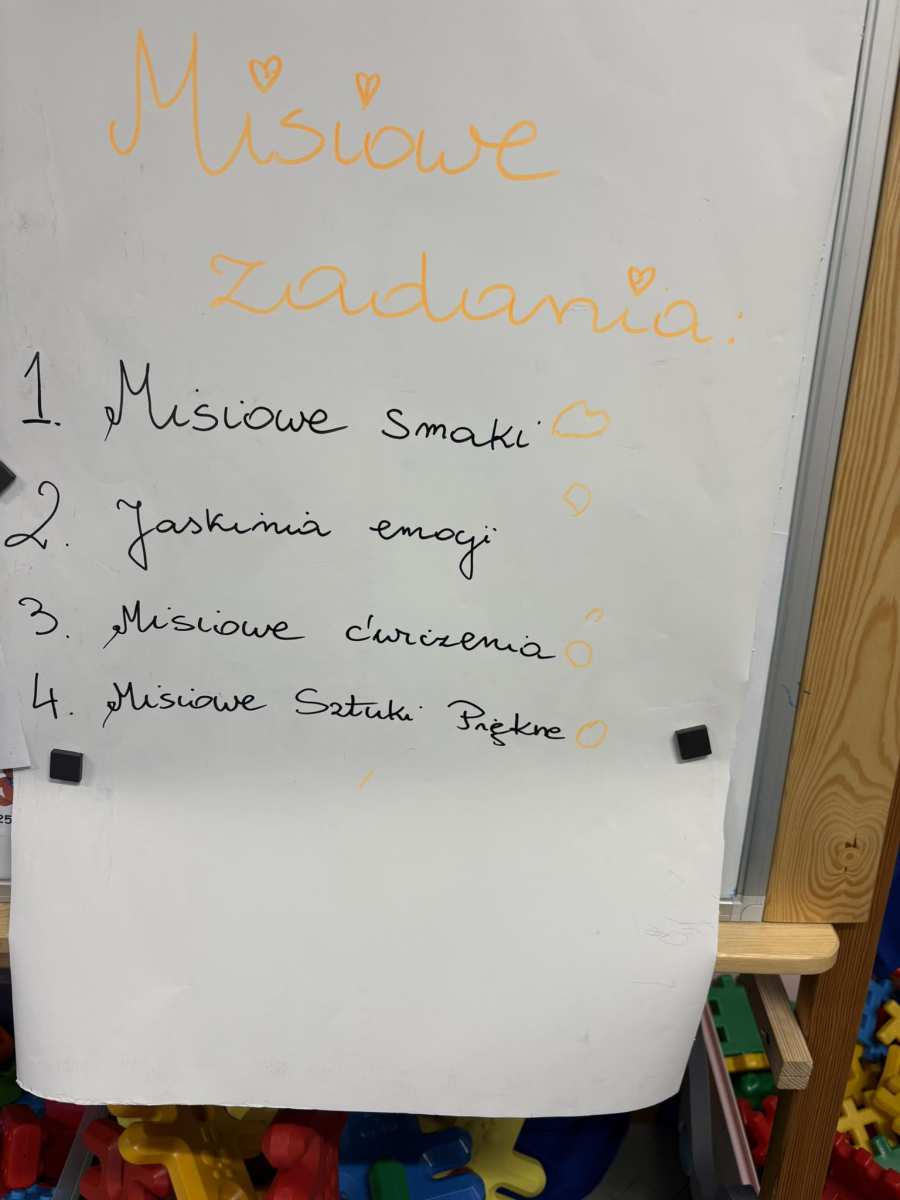 Misiowe
zadania:
1. Misiowe smaki
2. Jaskinia emogi
3. Misiowe ćwiczenia
4. Misiowe Sztuki Piękne
25